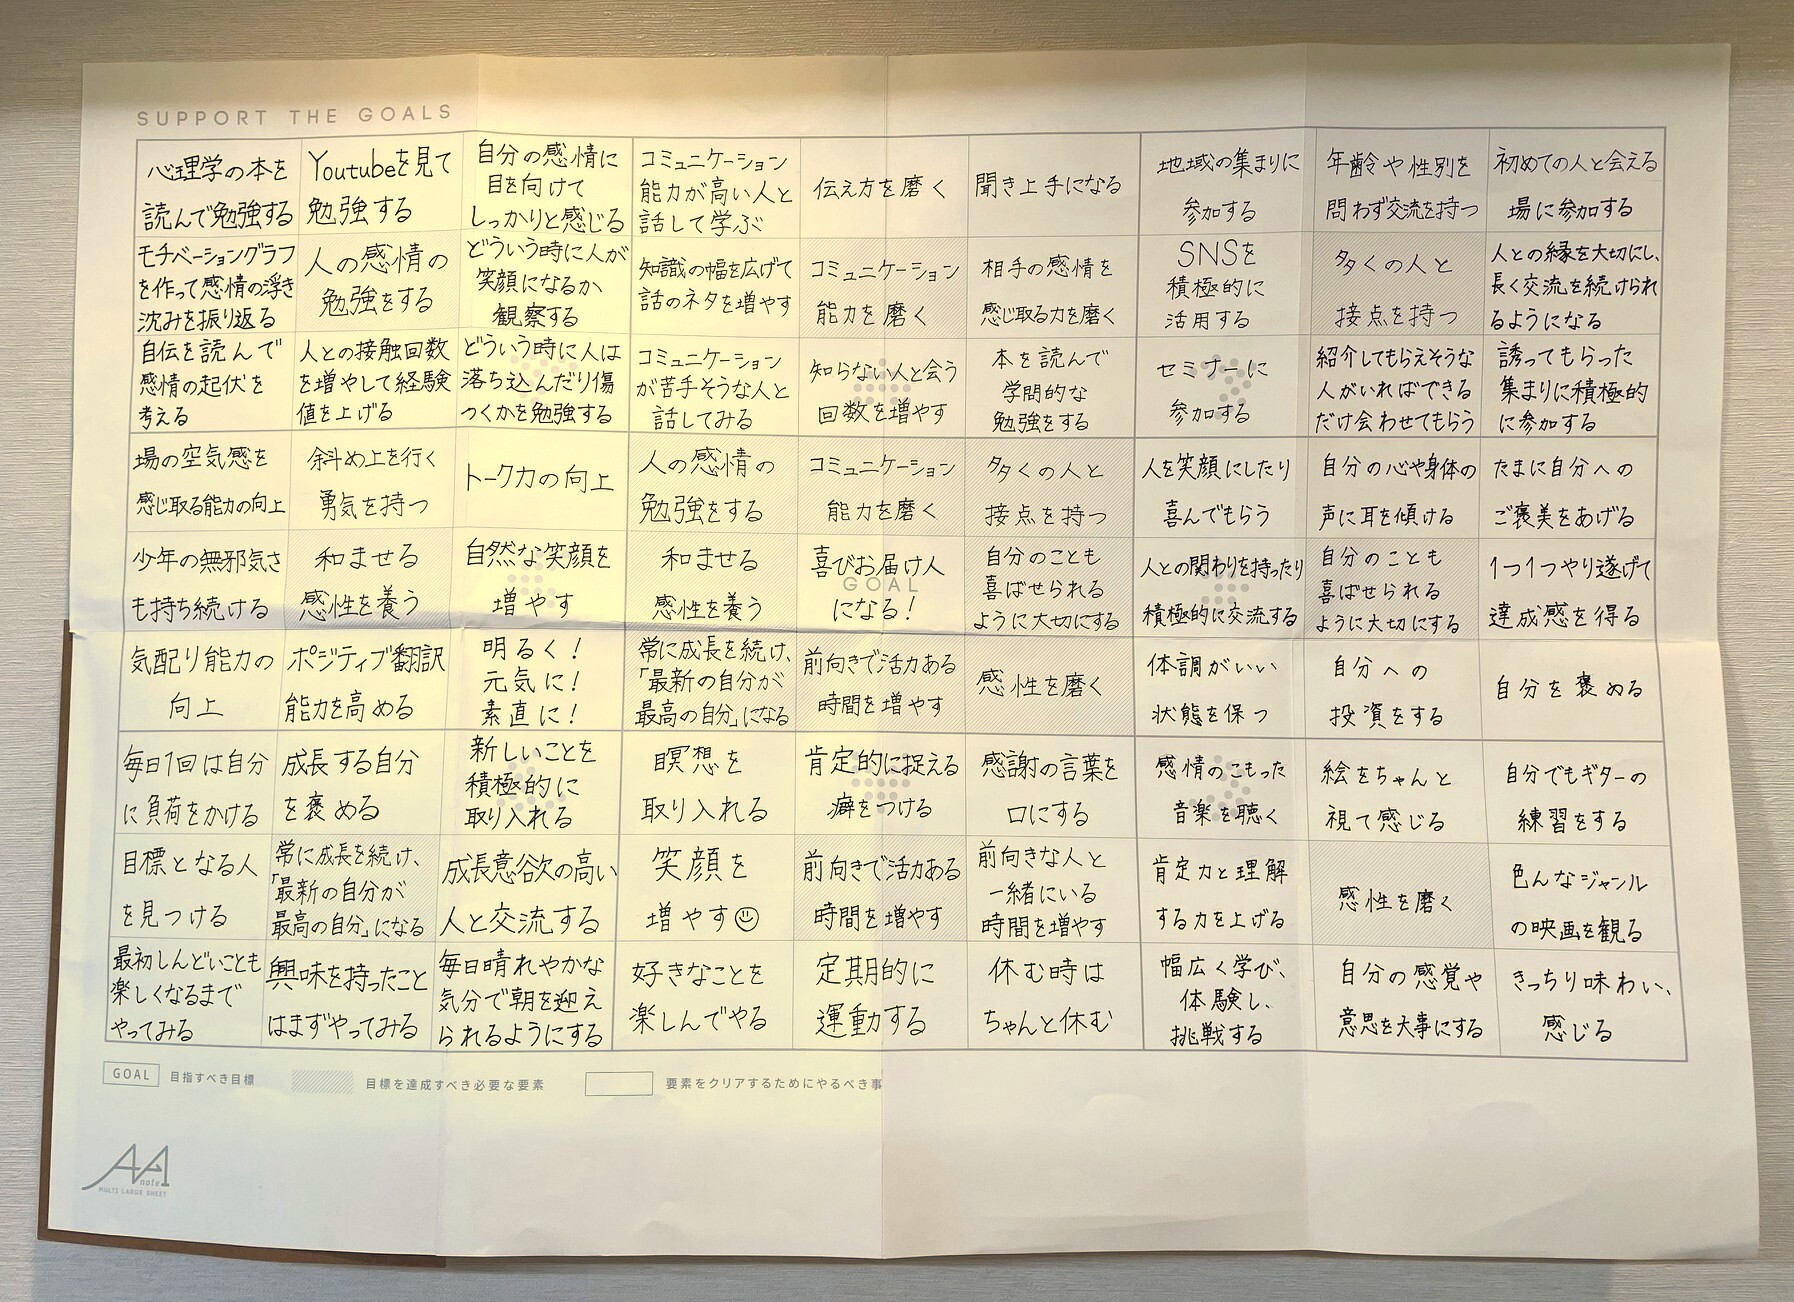 SUPPORT THE GOALS
心理学の本を
読んで勉強する
Youtubeを見て
勉強する
自分の感情に
目を向けて
しっかりと感じる
コミュニケーション
能力が高い人と
話して学ぶ
伝え方を磨く
聞き上手になる
地域の集まりに
参加する
年齢や性別を
問わず交流を持つ
初めての人と会える
場に参加する
モチベーショングラフ
を作って感情の浮き
沈みを振り返る
人の感情の
勉強をする
どういう時に人が
笑顔になるか
観察する
知識の幅を広げて
話のネタを増やす
コミュニケーション
能力を磨く
相手の感情を
感じ取る力を磨く
SNSを
積極的に
活用する
多くの人と
接点を持つ
人との縁を大切にし、
長く交流を続けられ
るようになる
自伝を読んで
感情の起伏を
考える
人との接触回数
を増やして経験
値を上げる
どういう時に人は
落ち込んだり傷
つくかを勉強する
コミュニケーション
が苦手そうな人と
話してみる
知らない人と会う
回数を増やす
本を読んで
学問的な
勉強をする
セミナーに
参加する
紹介してもらえそうな
人がいればできる
だけ会わせてもらう
誘ってもらった
集まりに積極的
に参加する
場の空気感を
感じ取る能力の向上
斜め上を行く
勇気を持つ
トーク力の向上
人の感情の
勉強をする
コミュニケーション
能力を磨く
多くの人と
接点を持つ
人を笑顔にしたり
喜んでもらう
自分の心や身体の
声に耳を傾ける
たまに自分への
ご褒美をあげる
少年の無邪気さ
も持ち続ける
和ませる
感性を養う
自然な笑顔を
増やす
和ませる
感性を養う
喜びお届け人
GOAL
になる!
自分のことも
喜ばせられる
ように大切にする
人との関わりを持ったり
積極的に交流する
自分のことも
喜ばせられる
ように大切にする
1つ1つやり遂げて
達成感を得る
気配り能力の
向上
ポジティブ翻訳
能力を高める
明るく!
元気に!
素直に!
常に成長を続け、
「最新の自分が
最高の自分」になる
前向きで活力ある
時間を増やす
感性を磨く
体調がいい
状態を保つ
自分への
投資をする
自分を褒める
毎日1回は自分
に負荷をかける
成長する自分
を褒める
新しいことを
積極的に
取り入れる
瞑想を
取り入れる
肯定的に捉える
癖をつける
感謝の言葉を
口にする
感情のこもった
音楽を聴く
絵をちゃんと
視て感じる
自分でもギターの
練習をする
目標となる人
を見つける
常に成長を続け、
「最新の自分が
最高の自分」になる
成長意欲の高い
人と交流する
笑顔を
増やす☺
前向きで活力ある
時間を増やす
前向きな人と
一緒にいる
時間を増やす
肯定力と理解
する力を上げる
感性を磨く
色んなジャンル
の映画を観る
最初しんどいことも
楽しくなるまで
やってみる
興味を持ったこと
はまずやってみる
毎日晴れやかな
気分で朝を迎え
られるようにする
好きなことを
楽しんでやる
定期的に
運動する
休む時は
ちゃんと休む
幅広く学び、
体験し、
挑戦する
自分の感覚や
意思を大事にする
きっちり味わい、
感じる
GOAL 目指すべき目標
目標を達成すべき必要な要素
要素をクリアするためにやるべき事
A1 note
MULTI LARGE SHEET